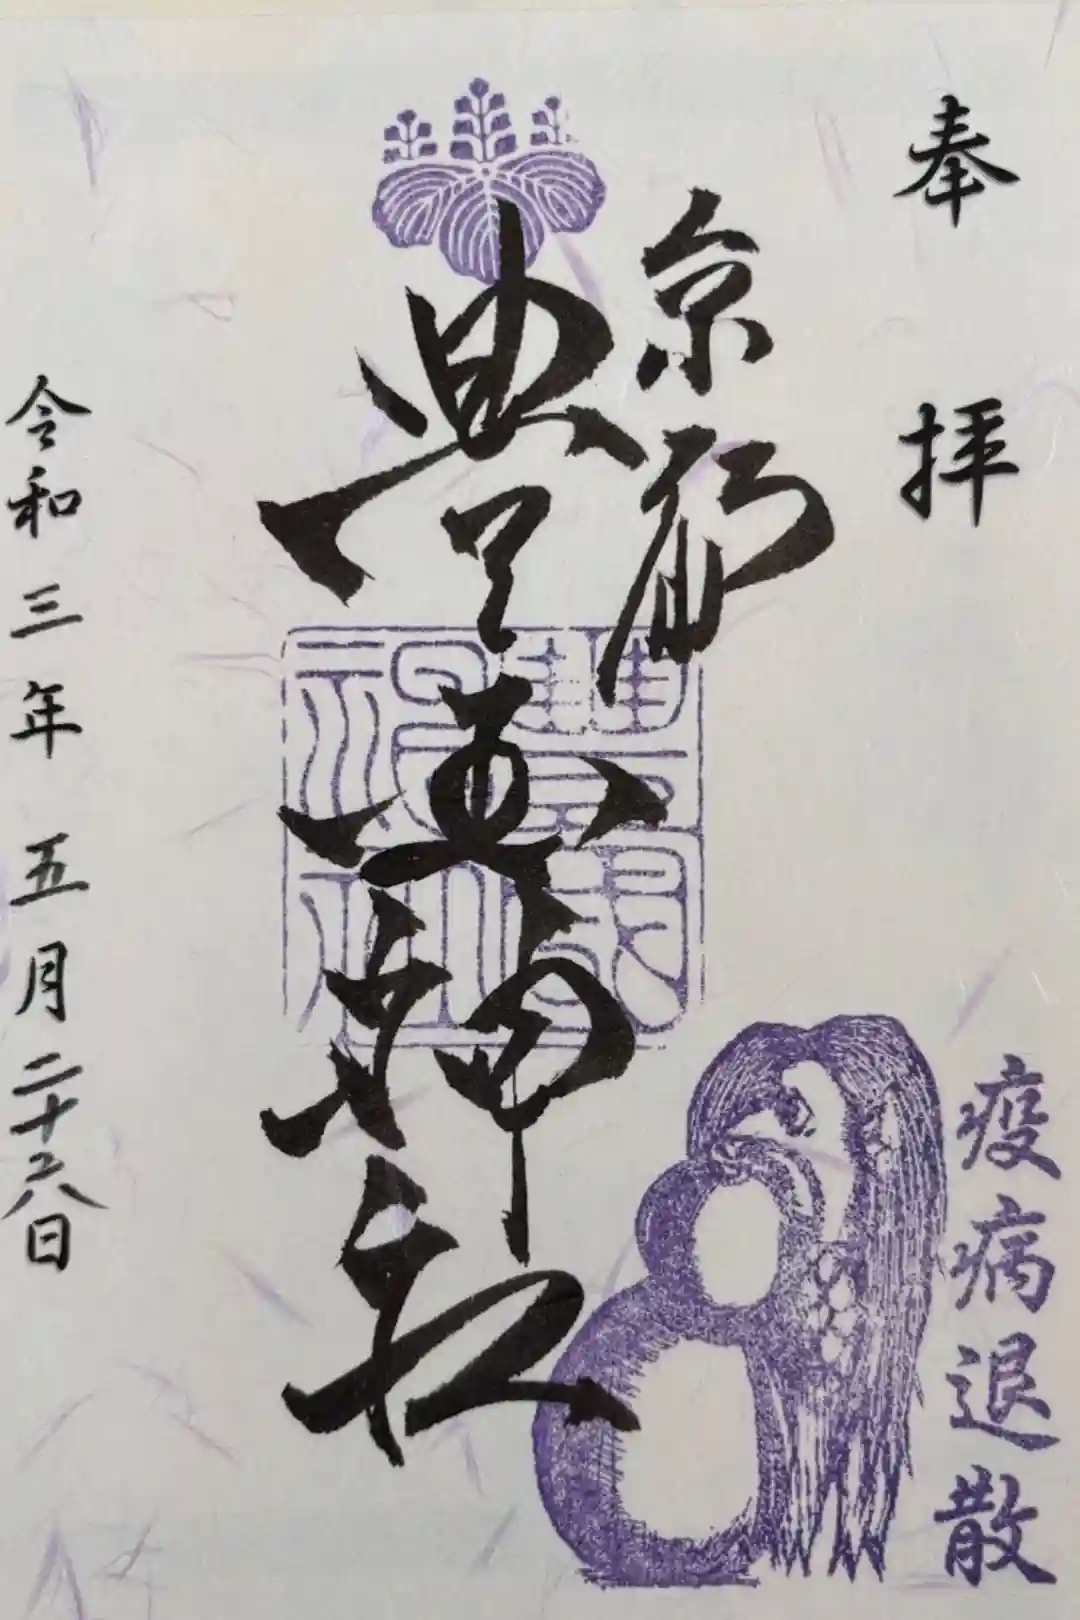 奉拝
京
豊国神社
豐國神社
疫病退散
令和三年五月二十六日